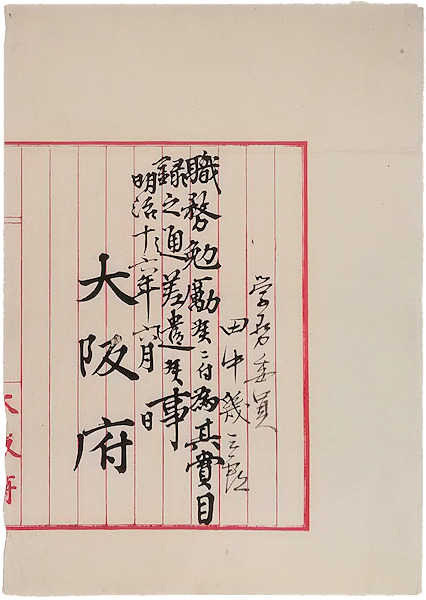 学務委員
田中幾三郎
職務勉勵候ニ付為其賞目
録之通差遣候事
明治十六年六月 日
大阪府
大阪府